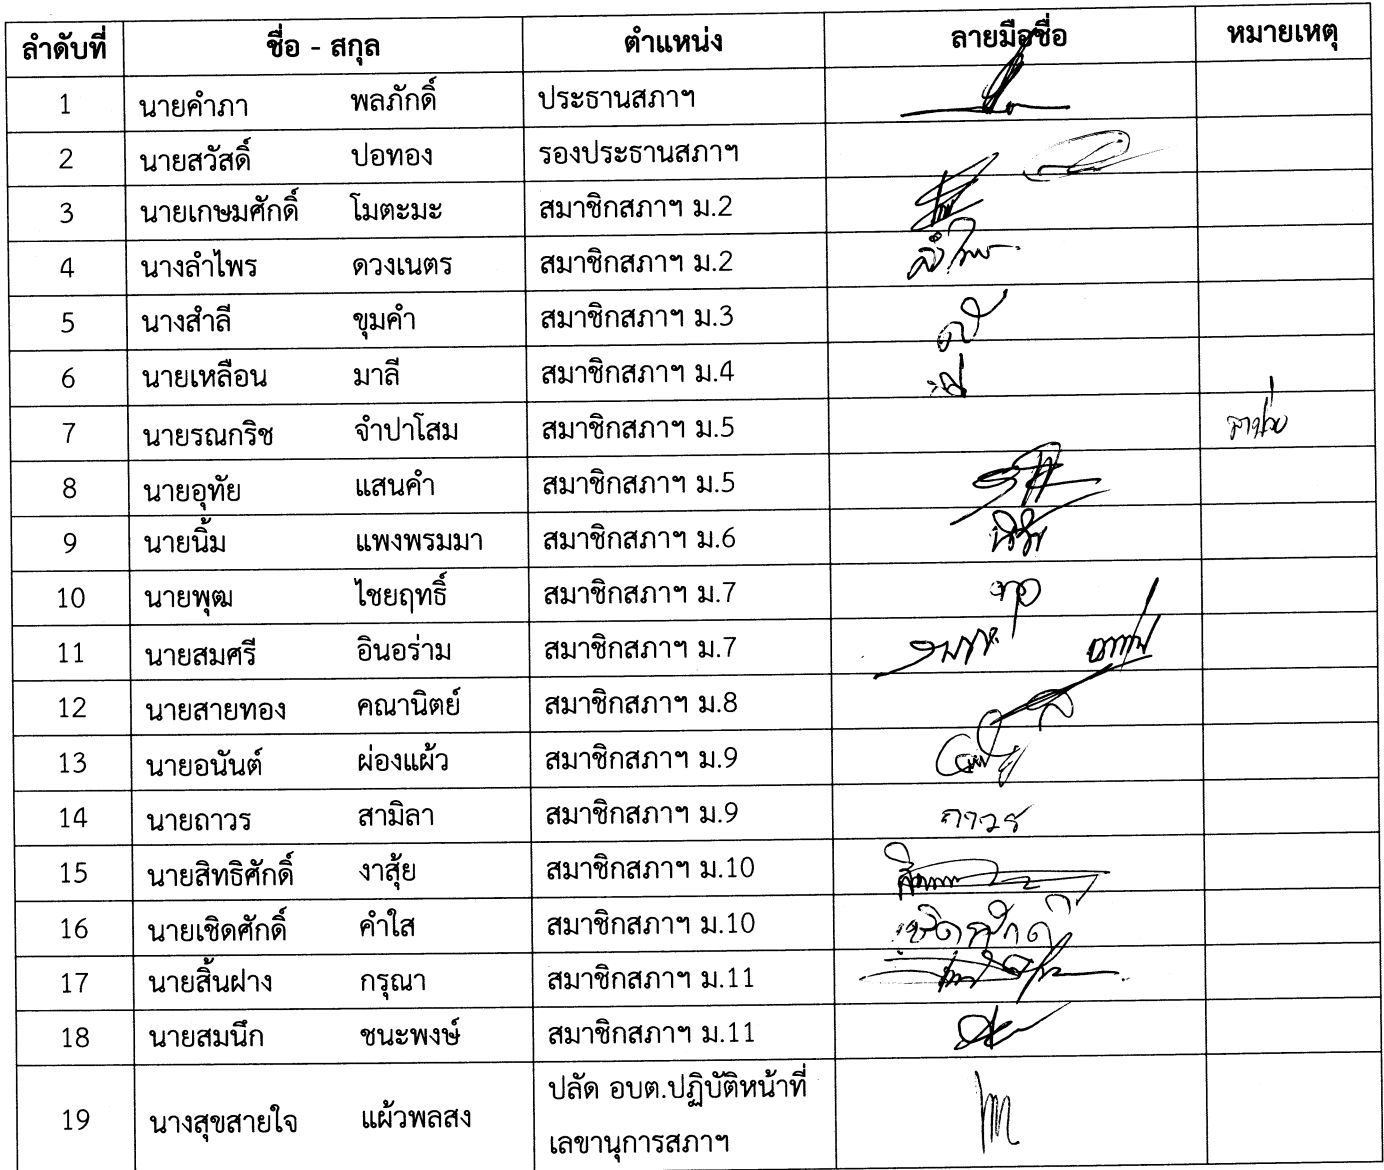 ลำดับที่ ชื่อ - สกุล ตำแหน่ง ลายมือชื่อ หมายเหตุ
1 นายคำภา พลภักดิ์ ประธานสภาฯ
2 นายสวัสดิ์ ปอทอง รองประธานสภาฯ
3 นายเกษมศักดิ์ โมตะมะ สมาชิกสภาฯ ม.2
4 นางลำไพร ดวงเนตร สมาชิกสภาฯ ม.2 ลำไพร
5 นางสำลี ขุมคำ สมาชิกสภาฯ ม.3
6 นายเหลือน มาลี สมาชิกสภาฯ ม.4
7 นายรณกริช จำปาโสม สมาชิกสภาฯ ม.5 ลาป่วย
8 นายอุทัย แสนคำ สมาชิกสภาฯ ม.5
9 นายนิ้ม แพงพรมมา สมาชิกสภาฯ ม.6
10 นายพุฒ ไชยฤทธิ์ สมาชิกสภาฯ ม.7
11 นายสมศรี อินอร่าม สมาชิกสภาฯ ม.7
12 นายสายทอง คณานิตย์ สมาชิกสภาฯ ม.8
13 นายอนันต์ ผ่องแผ้ว สมาชิกสภาฯ ม.9
14 นายถาวร สามิลา สมาชิกสภาฯ ม.9 ถาวร
15 นายสิทธิศักดิ์ งาสุ้ย สมาชิกสภาฯ ม.10
16 นายเชิดศักดิ์ คำใส สมาชิกสภาฯ ม.10 เชิดศักดิ์
17 นายสิ้นฝาง กรุณา สมาชิกสภาฯ ม.11
18 นายสมนึก ชนะพงษ์ สมาชิกสภาฯ ม.11
19 นางสุขสายใจ แผ้วพลสง ปลัด อบต.ปฏิบัติหน้าที่
เลขานุการสภาฯ